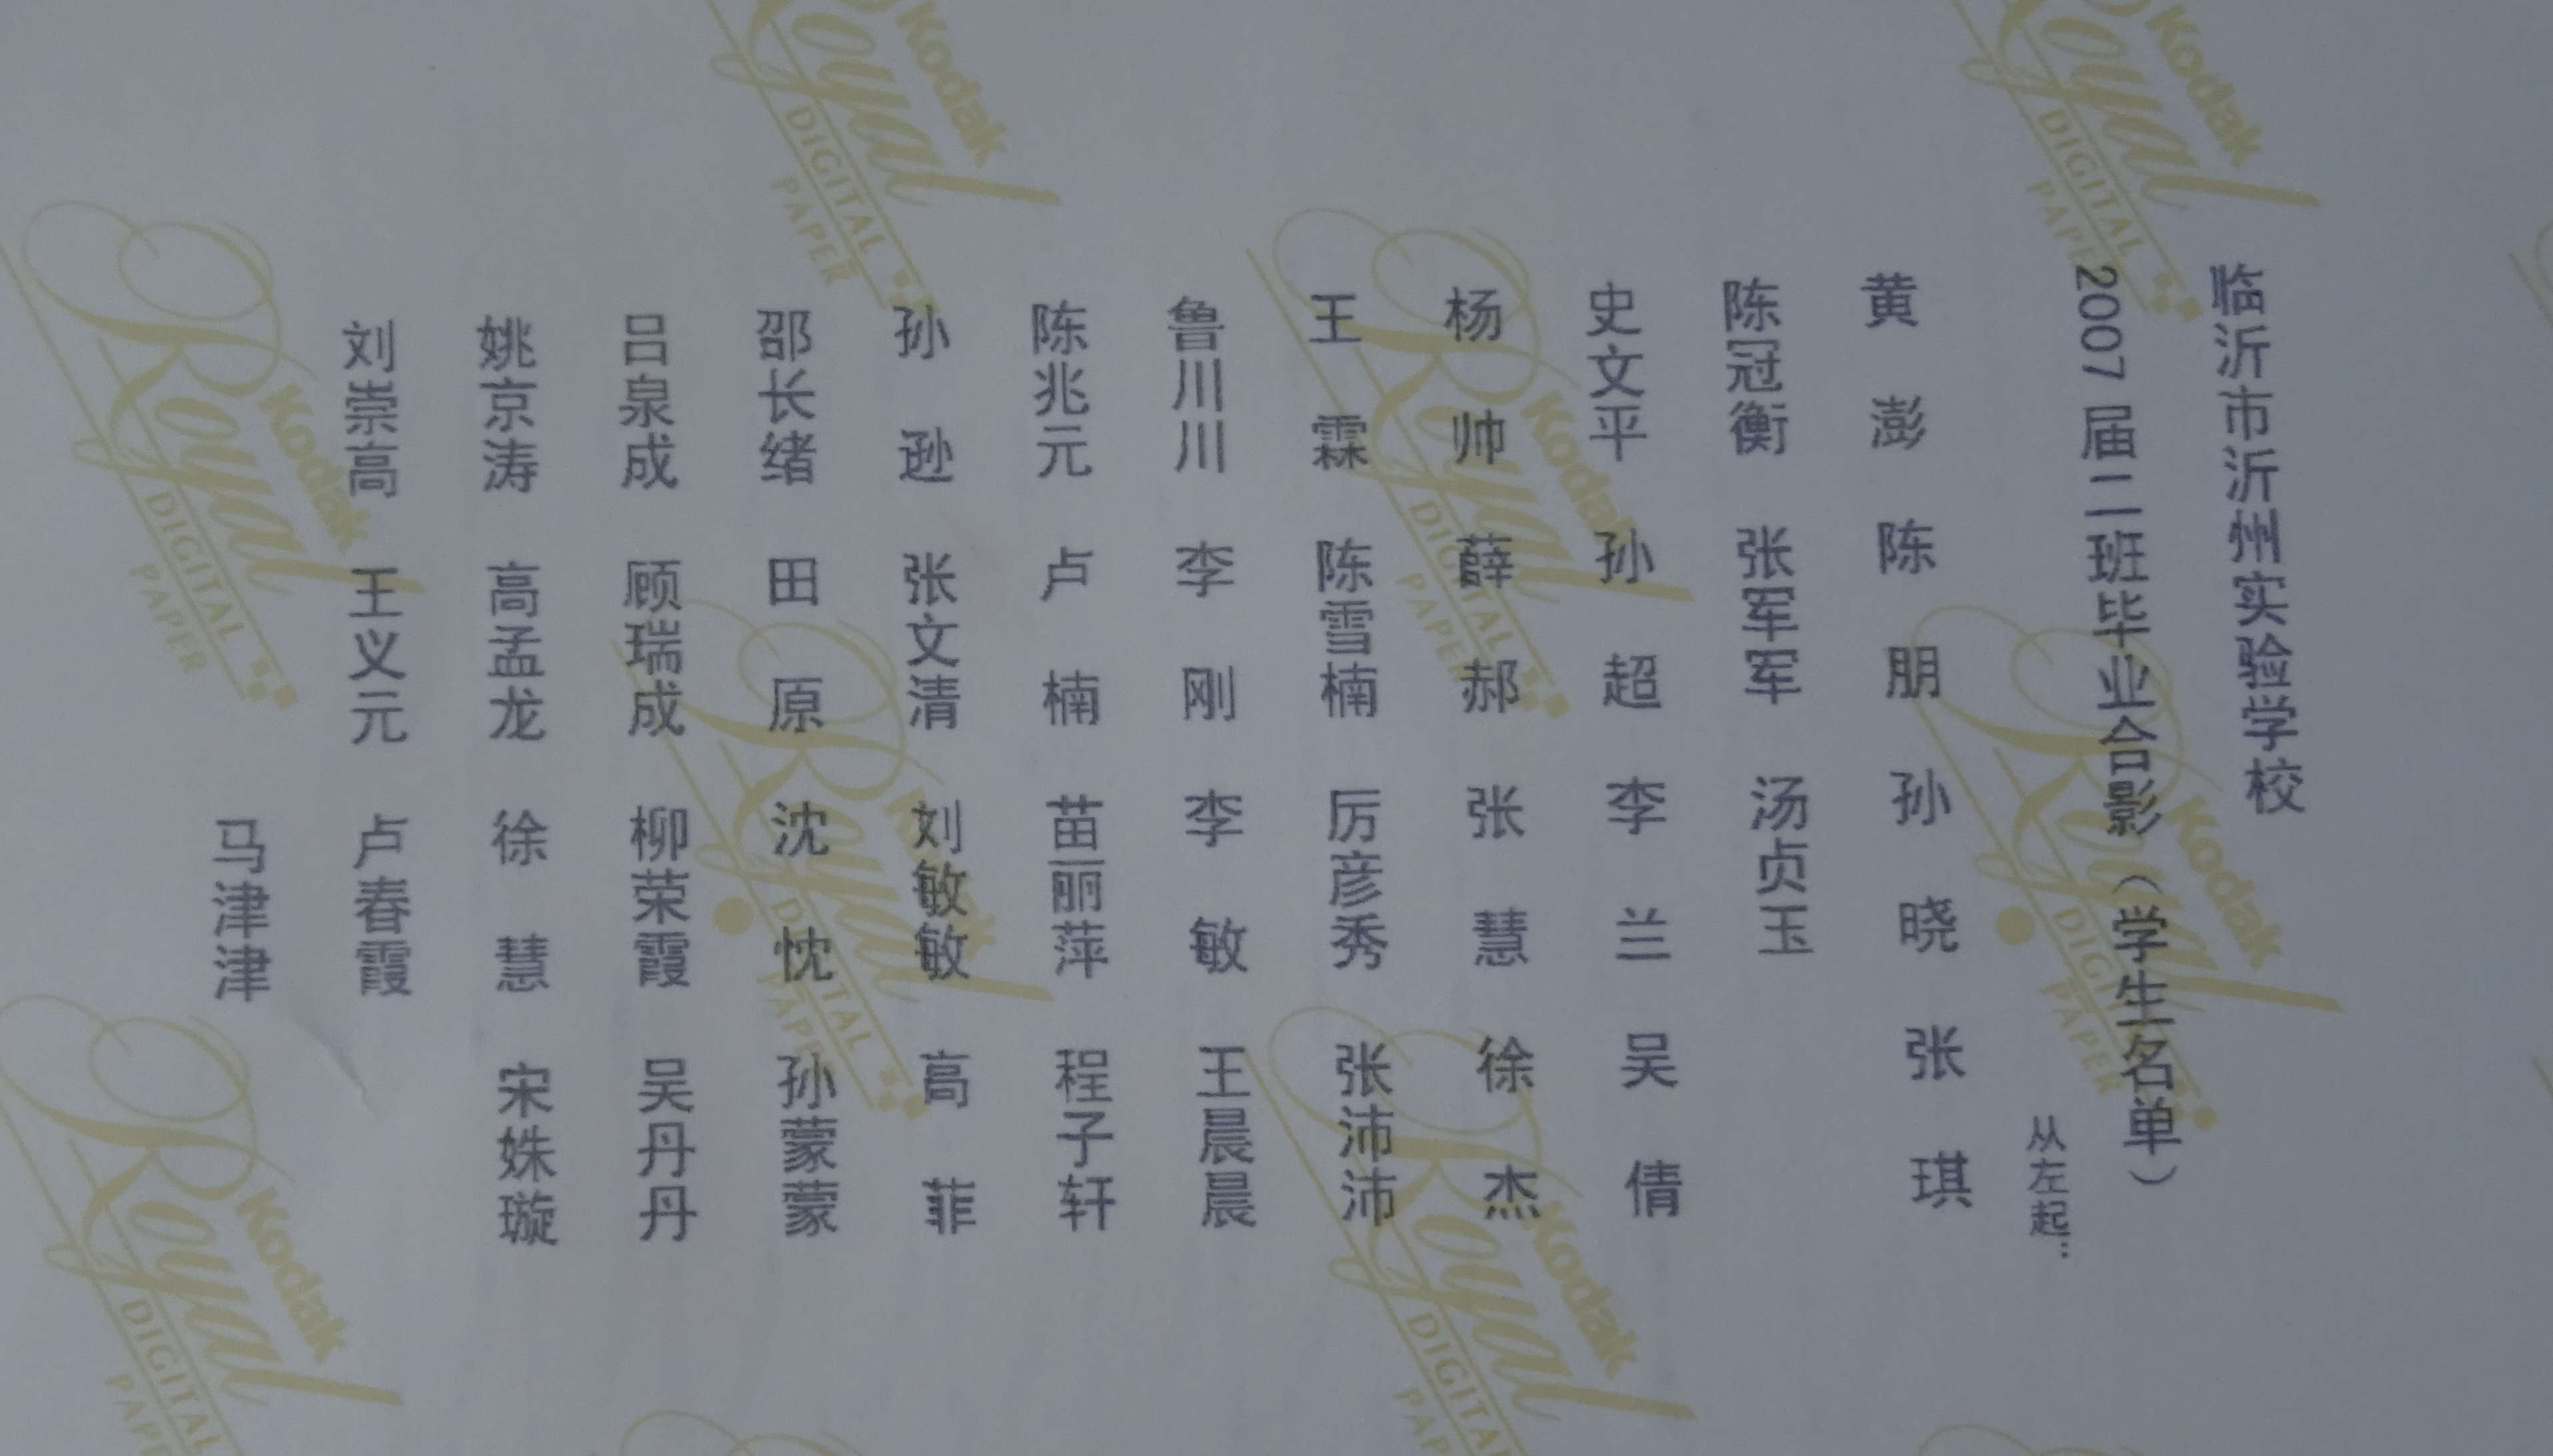 临沂市沂州实验学校
2007 届二班毕业合影（学生名单）
从左起…
黄 澎 陈 朋 孙 晓 张 琪
陈冠衡 张军军 汤贞玉
史文平 孙 超 李 兰 吴 倩
杨 帅 薛 郝 张 慧 徐 杰
王 霖 陈雪楠 厉彦秀 张沛沛
鲁川川 李 刚 李 敏 王晨晨
陈兆元 卢 楠 苗丽萍 程子轩
孙 逊 张文清 刘敏敏 高 菲
邵长绪 田 原 沈 忱 孙蒙蒙
吕泉成 顾瑞成 柳荣霞 吴丹丹
姚京涛 高孟龙 徐 慧 宋姝璇
刘崇高 王义元 卢春霞
马津津
Kodak
Royal
DIGITAL
PAPER